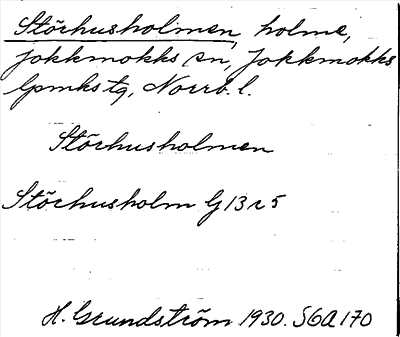 Störhusholmen, holme,
Jokkmokks sn, Jokkmokks
lpmkstg, Norrb. l.
Störhusholmen
Störhusholm G 13 r 5
H. Grundström 1930. SGA 170